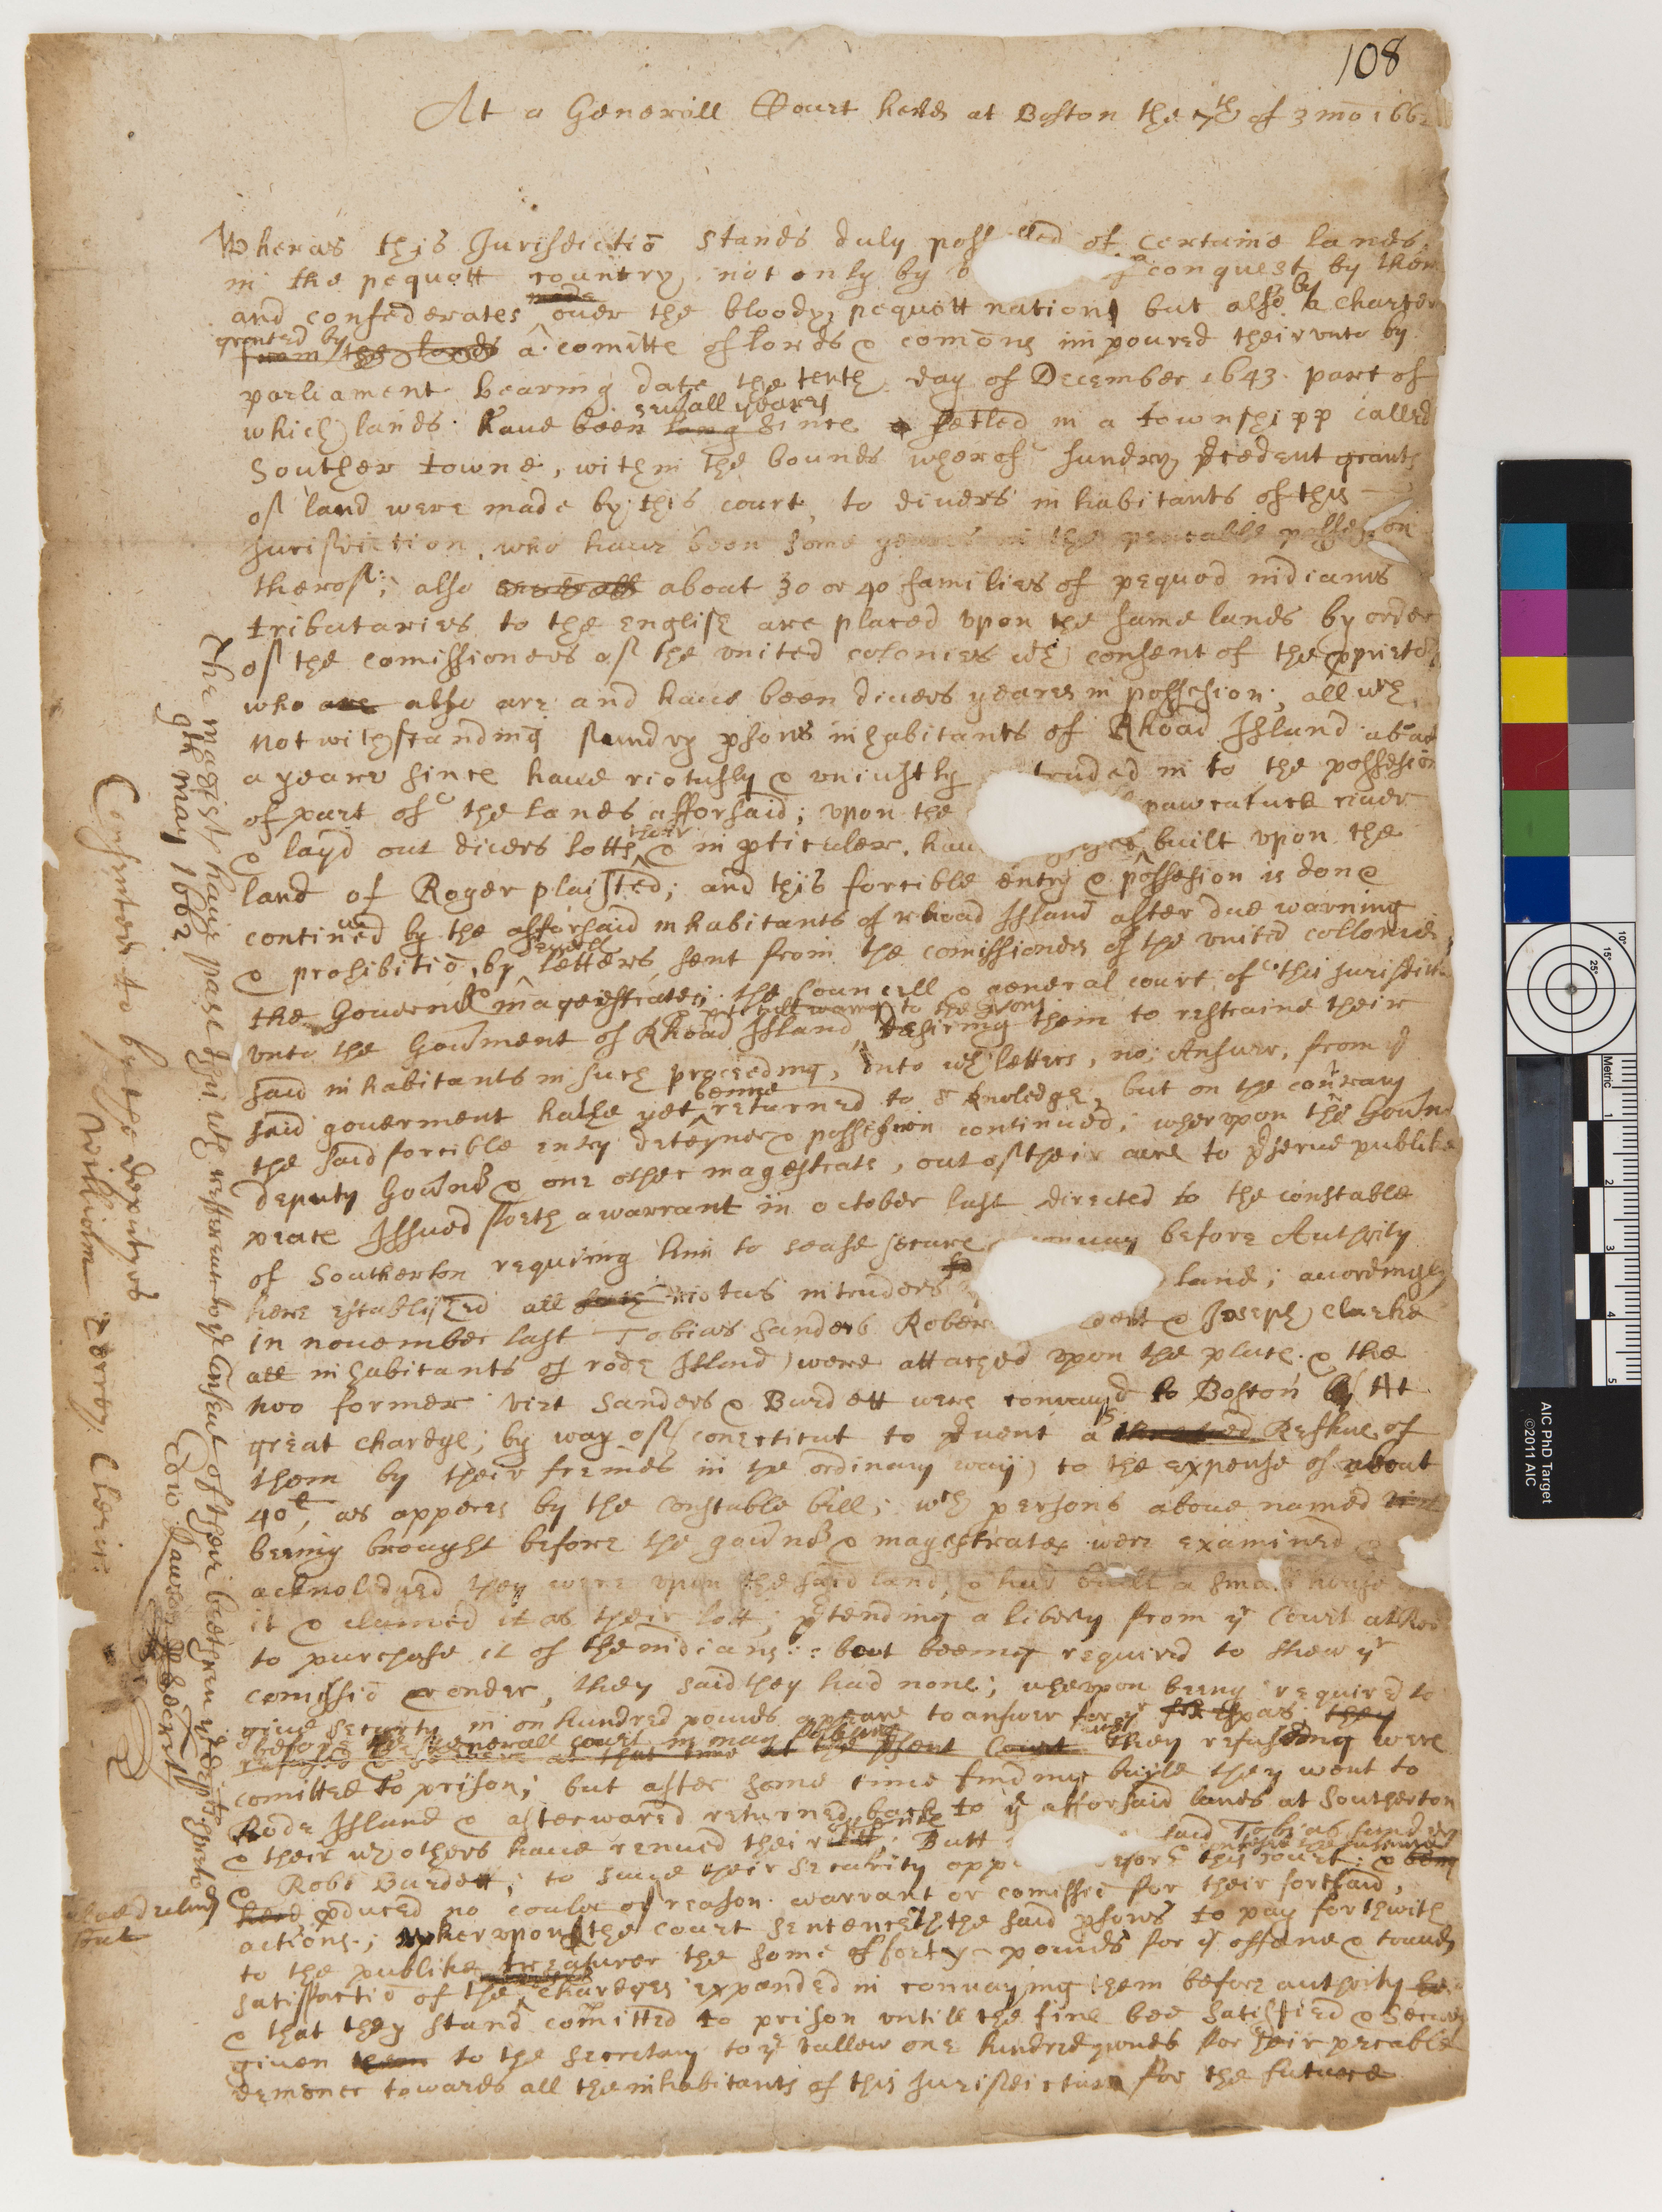 108
At a Generall Court held at Boston the 7th of 3 mo 1662
Wheras this Jurisdictiõ stands duly poss ed of certaine lands
in the pequott country, not only by conquest by them
and confederates made over the bloody pequott nation but also by a charter
granted by from the lords a comitte of lords & comõns impoured their vnto by
parliament bearing date the tenth day of December 1643. part of
which lands haue been long severall yeares since setled in a townshipp called
Souther towne, within the bounds wherof sundry grants
of land were made by this court, to divers inhabitants of this
Jurisdiction, who haue been some yeares in the peacable possession
therof; also severall about 30 or 40 families of pequod indians
tributaries to the english are placed vpon the same lands by order
of the comissioners of the vnited colonies wth consent of the
who are also are and haue been divers yeares in possession; all wch
notwithstanding sundry psons inhabitants of Rhoad Island about
a yeare since haue riotusly & vniustly truded in to the possesion
of part of the lands afforsaid; vpon the pawcatuck river
& layd out divers lotts their & in pticuler, built vpon the
land of Roger plaisted; and this forcible entry & possesion is done
contined by the afforsaid inhabitants of rhoad Island after due warning
& prohibitiõ, by severall letters sent from the comissioners of the vnited collonies
the Governor magestrates; the councell & general court of this jurisdictiõ
vnto the Goverment of Rhoad Island, desiring them to restraine their
said inhabitants in such proceeding, vnto wch letters, no Answer, from ye
said goverment hathe yet beene returned to or knoledge, but on the contrary
the said forcible entry deteyner & possession continued; wherupon the Governr
deputy Governr & one other magestrate, out of their care to pserve publike
peace Issued forth a warrant in october last directed to the constable
of Southerton requiring him to sease secure convay before Authority
here established all such riotus intruders land; acordingly
in november last Tobias Sanders Rober dett & Joseph Clarke
all inhabitants of rode Island were attached vpon the place. & the
two former vizt Sanders & Burdett were convayd to Boston by At
great chardge; by way of conecticut to pvent a Reskue of
them by their freinds in the ordinary way to the expense of about
40l, as apperes by the constable bill; wch persons above named vizt
being brought before the governr & magestrates were examined &
acknoledged they were vpon the said land, & had built a small house
it & claimed it as their lott; ptending a liberty from ye Court at Rod
to purchase it of the indians: but beeing required to shew yr
comissiõ or order, they said they had none; wherupon being required to
give security in on hundred pounds appeare to answer for yr trespas they
before the generall court in may following they refusing were
comitted to prison; but after some time finding bayle they went to
Rode Island & afterward returned back to ye afforsaid lands at Southerton
& their wth others haue renued their; Butt said Tobias Sanders
& Robt Burdett; to save their security app before this court: & being
had pduced no coulor of reason warrant or comission for their forsaid,
actions; wherupon the court sentenceth the said psons to pay forthwith
to the publike treasurer the some of forty pounds for ye offence & towards
satisfactiõ of the chardges expended in convaying them before authority
& that they stand comitted to prison vntill the fine bee satisfied & security
given them to the secretary to ye vallew one hundred pounds for their peacable
demener towards all the inhabitants of this Jurisdiction for the future
The magists haue past this wth refferenc to ye Consent of their bretheren ye deptes hereto
9th may 1662 Edw Rawson Secrety
Consented to by the deputyes
William Torrey Cleric.